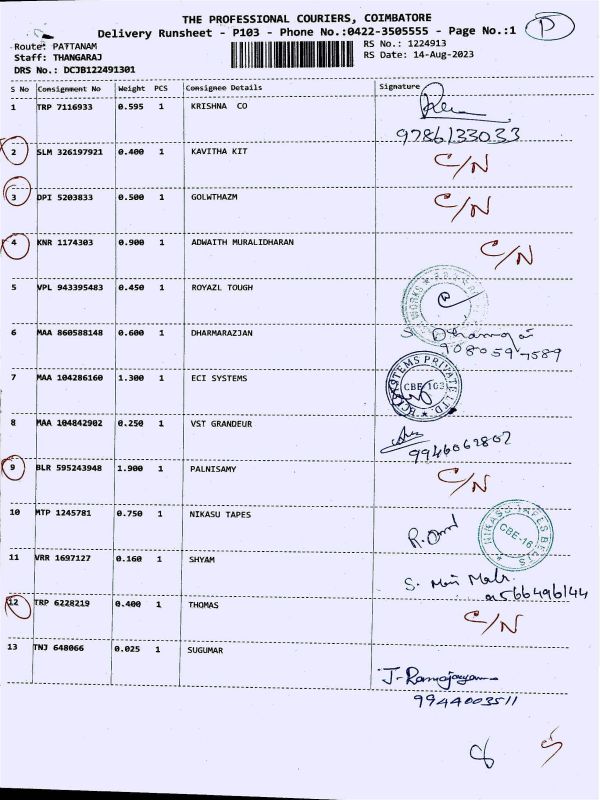 THE PROFESSIONAL COURIERS, COIMBATORE
Delivery Runsheet - P103 - Phone No.:0422-3505555 - Page No.:1 P
Route: PATTANAM RS No.: 1224913
Staff: THANGARAJ RS Date: 14-Aug-2023
DRS No.: DCJB122491301
S No Consignment No Weight PCS Consignee Details Signature
1 TRP 7116933 0.595 1 KRISHNA CO
9786133033
2 SLM 326197921 0.400 1 KAVITHA KIT C/N
3 DPI 5203833 0.500 1 GOLWTHAZM C/N
4 KNR 1174303 0.900 1 ADWAITH MURALIDHARAN C/N
5 VPL 943395483 0.450 1 ROYAZL TOUGH
WORKS
6 MAA 860588148 0.600 1 DHARMARAZJAN S.
7 MAA 104286160 1.300 1 ECI SYSTEMS
SYSTEMS PRIVATE LTD. CBE-103
8 MAA 104842902 0.250 1 VST GRANDEUR
9946062802
9 BLR 595243948 1.900 1 PALNISAMY C/N
10 MTP 1245781 0.750 1 NIKASU TAPES
NIKASU TAPES CBE-16
11 VRR 1697127 0.160 1 SHYAM S. Mani
9566496144
12 TRP 6228219 0.400 1 THOMAS C/N
13 TNJ 648066 0.025 1 SUGUMAR
J-Ramajayam
9944003511
8 5